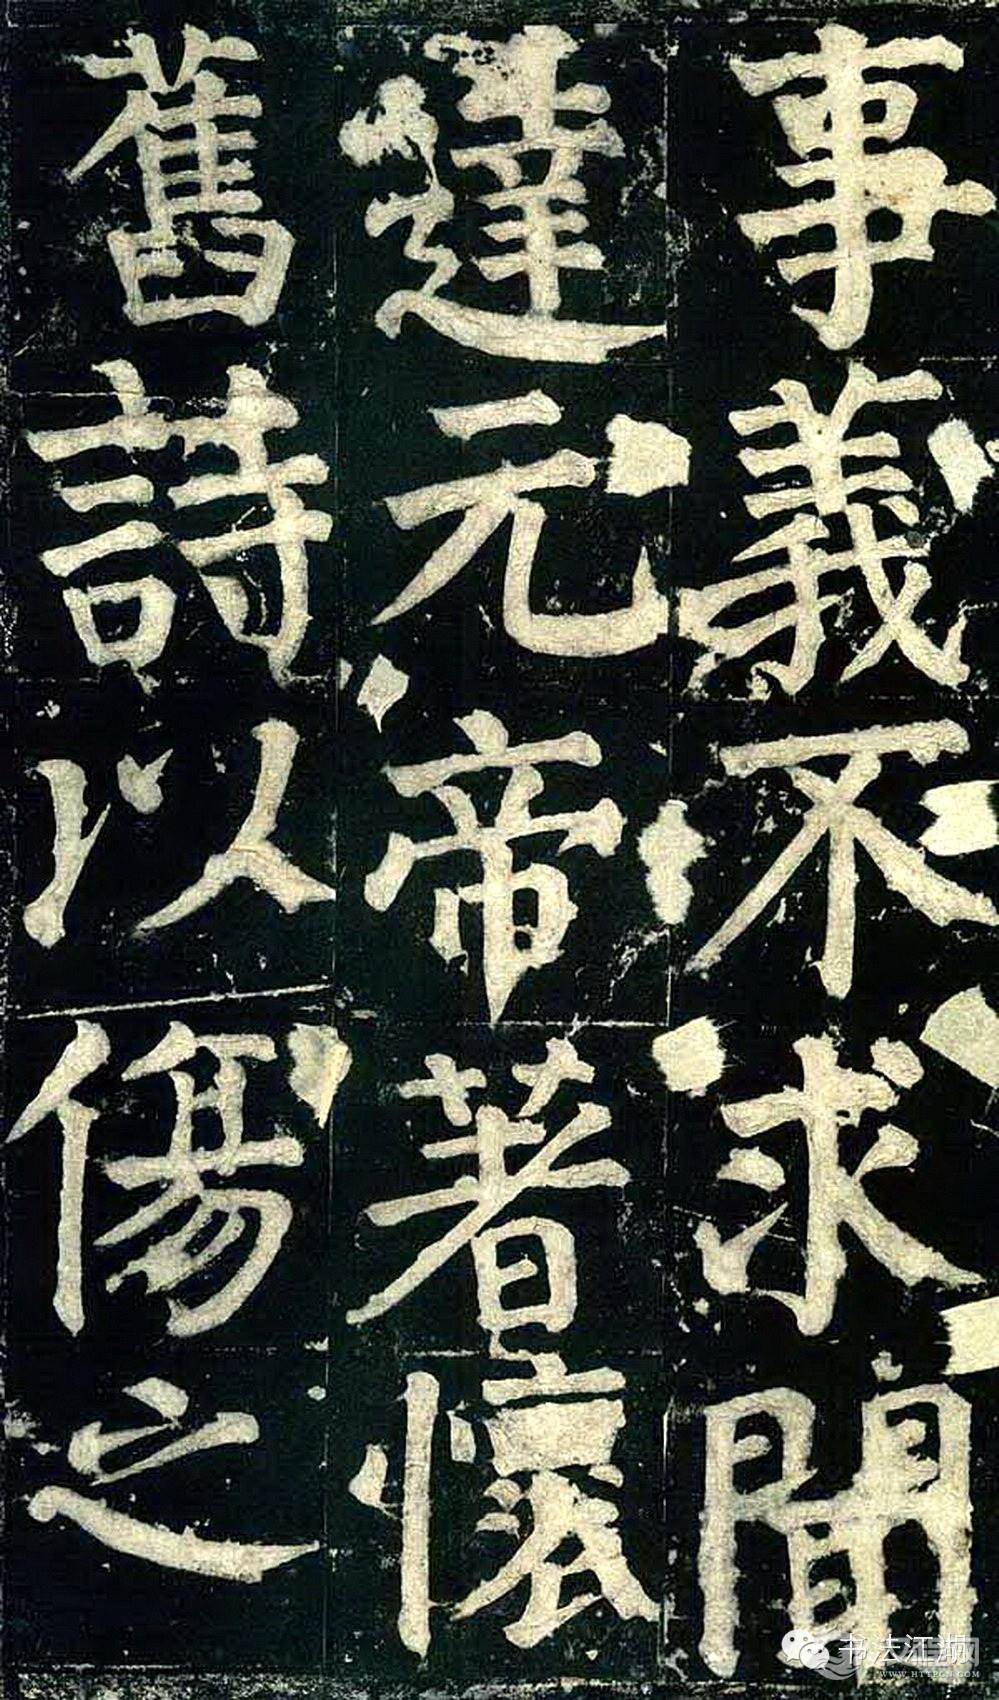 事義不求聞
達元帝著懷
舊詩以傷之
书法江湖
WWW.HTTPCN.COM